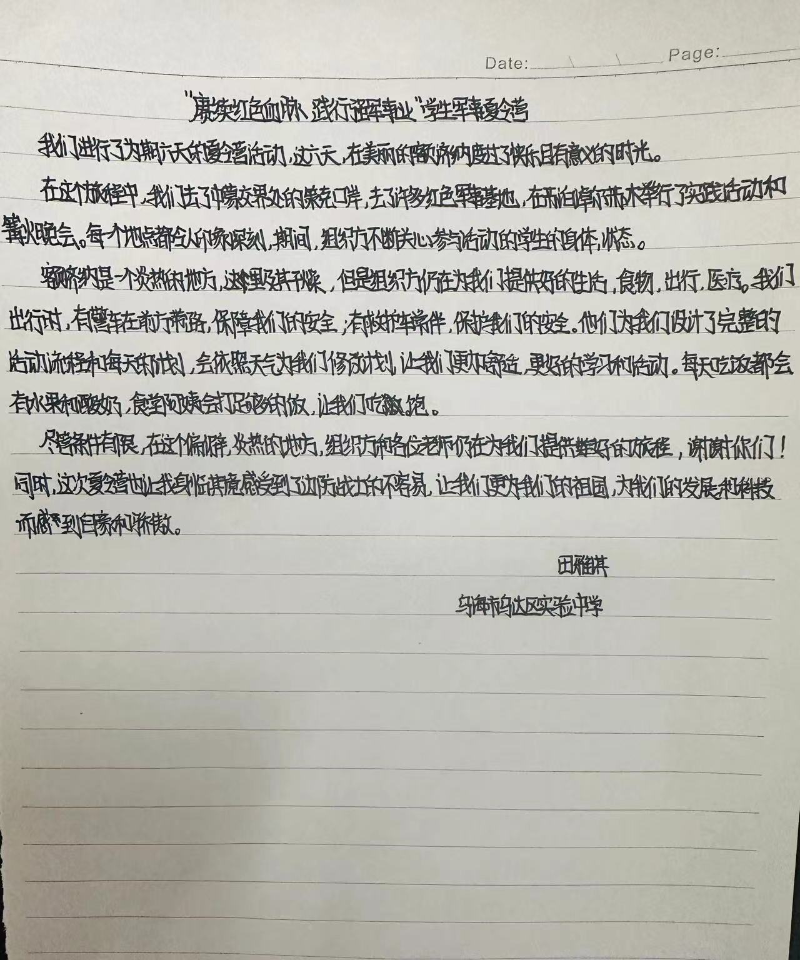 Date: \ \ Page:
"赓续红色血脉、践行强军事业"学生军事夏令营
我们进行了为期六天的夏令营活动,这六天,在美丽的额济纳度过了快乐且有意义的时光。
在这个旅程中,我们去了中蒙交界处的策克口岸,去了许多红色军事基地,在赛汉陶来苏木举行了实践活动和
篝火晚会。每一个地点都令人印象深刻,期间,组织方不断关心参与活动的学生的身体状态。
额济纳是一个炎热的地方,这里极其干燥,但是组织方仍在为我们提供好的生活,食物,出行,医疗。我们
出行时,有警车在前方带路,保障我们的安全,有救护车常伴,保护我们的安全。他们为我们设计了完整的
活动流程和每天的计划,会依照天气为我们修改计划,让我们更加舒适,更好的学习和活动。每天吃饭都会
有水果和酸奶,食堂阿姨会打足够的饭,让我们吃饱。
尽管条件有限,在这个偏僻,炎热的地方,组织方和各位老师仍在为我们提供更好的旅程,谢谢你们!
同时,这次夏令营也让我身临其境感受到了边防战士的不容易,让我们更为我们的祖国,为我们的发展和科技
而感到自豪和骄傲。
田雅淇
乌海市乌达区实验中学